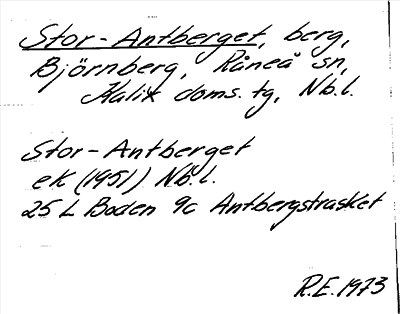 Stor-Antberget, berg,
Björnberg, Råneå sn,
Kalix doms. tg, Nb.l.
Stor-Antberget
ek (1951) Nb.l.
25 L Boden 9c Antbergsträsket
R.E. 1973